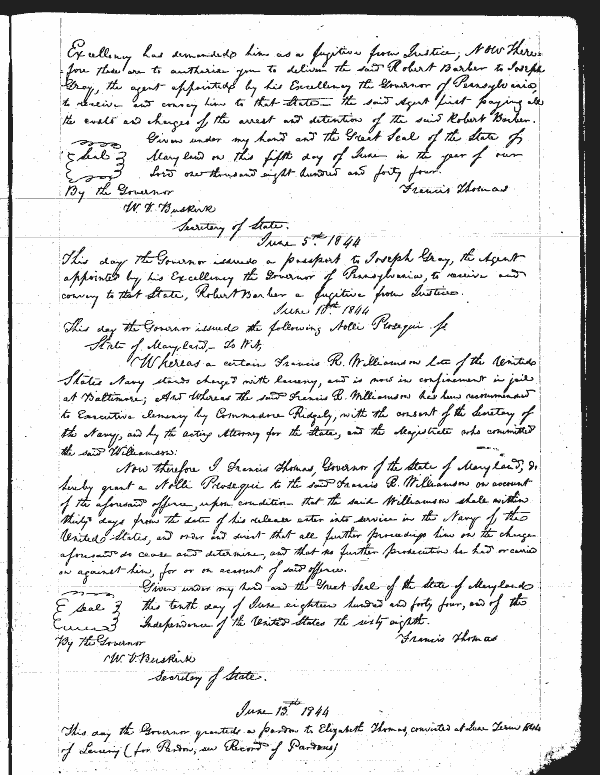 Excellency has demanded him as a fugitive from Justice; Now There-
fore these are to authorise you to deliver the said Robert Barber to Joseph
Gray, the agent appointed by his Excellency the Governor of Pennsylvania,
to receive and convey him to that State — the said Agent first paying all
the costs and charges of the arrest and detention of the said Robert Barber.
Given under my hand and the Great Seal of the State of
Seal Maryland on this fifth day of June in the year of our
Lord one thousand eight hundred and forty four.
By the Governor Francis Thomas
W. V. Buskirk
Secretary of State.
June 5th 1844
This day the Governor issued a passport to Joseph Gray, the Agent
appointed by his Excellency the Governor of Pennsylvania, to receive and
convey to that State, Robert Barber a fugitive from Justice.
June 10th 1844
This day the Governor issued the following Nolli Prosequi
State of Maryland, To Wit,
Whereas a certain Francis R. Williamson late of the United
States Navy stands charged with larceny, and is now in confinement in jail
at Baltimore; And Whereas the said Francis R. Williamson has been recommended
to Executive clemency by Commodore Ridgely, with the consent of the Secretary of
the Navy, and by the acting Attorney for the State, and the Magistrate who committed
the said Williamson:
Now therefore I Francis Thomas, Governor of the State of Maryland, do
hereby grant a Nolle Prosequi to the said Francis R. Williamson on account
of the aforesaid offence, upon condition that the said Williamson shall within
thirty days from the date of his release enter into service in the Navy of the
United States, and order and direct that all further proceedings him on the charge
aforesaid do cease and determine, and that no further prosecution be had or carried
on against him, for or on account of said offence.
Given under my hand and the Great Seal of the State of Maryland
Seal this tenth day of June eighteen hundred and forty four, and of the
Independence of the United States the sixty eighth.
By the Governor Francis Thomas
W. V. Buskirk
Secretary of State.
June 13th 1844
This day the Governor granted a pardon to Elizabeth Thomas, convicted at June Term 1844
of Larceny (for Pardon, see Record of Pardons)